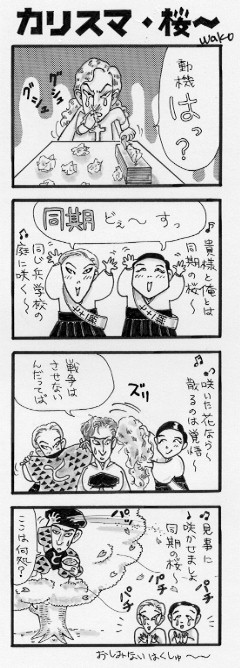 カリスマ・桜〜
wako
動機
はっ?
グシュ
グシュ
♪貴様と俺とは
同期の桜〜
同期
どぇ〜すっ
♪同じ兵学校の
庭に咲く〜
♪咲いた花なら〜
散るのは覚悟〜
ズリ
戦争は
させない
んだってば
♪見事に
咲かせましょ
同期の桜〜
パチ
パチ
ここは何処?
パチ
パチ
パチ
おしみないはくしゅ〜〜